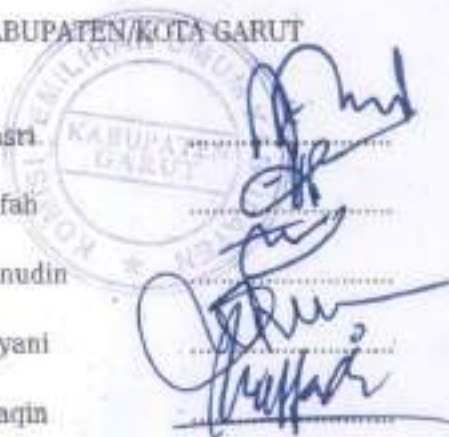 ABUPATEN/KOTA GARUT
KOMISI PEMILIHAN UMUM
KABUPATEN
GARUT
asri ........................
fah ........................
nudin ........................
yani ........................
aqin ........................